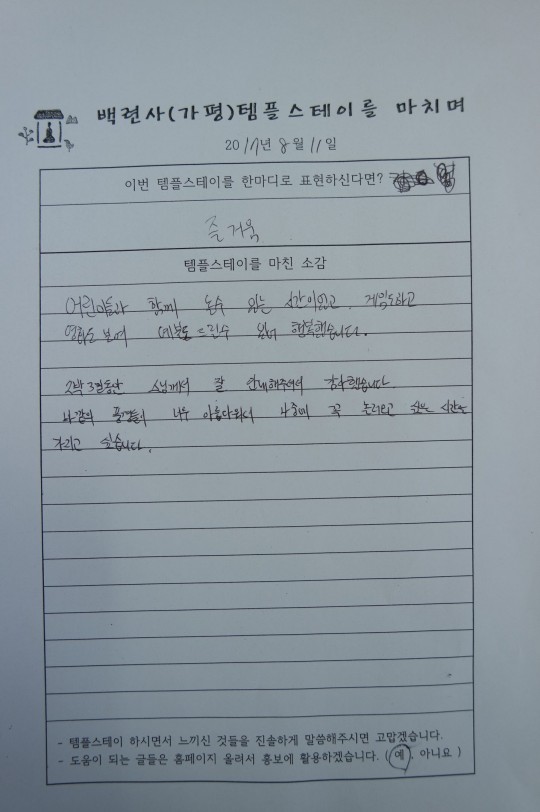 백련사(가평)템플스테이를 마치며
2017년 8월 11일
이번 템플스테이를 한마디로 표현하신다면?
즐거움
템플스테이를 마친 소감
어린이들과 함께 놀수 있는 시간이였고 게임도하고
영화도 보며 드릴수 있어 행복했습니다.
2박 3일동안 스님께서 잘 안내해주셔서 감사했습니다.
풍경들이 너무 아름다워서 나중에 꼭 놀러오고 싶은 시간을
가지고 싶습니다.
- 템플스테이 하시면서 느끼신 것들을 진솔하게 말씀해주시면 고맙겠습니다.
- 도움이 되는 글들은 홈페이지 올려서 홍보에 활용하겠습니다. ( 예, 아니요 )